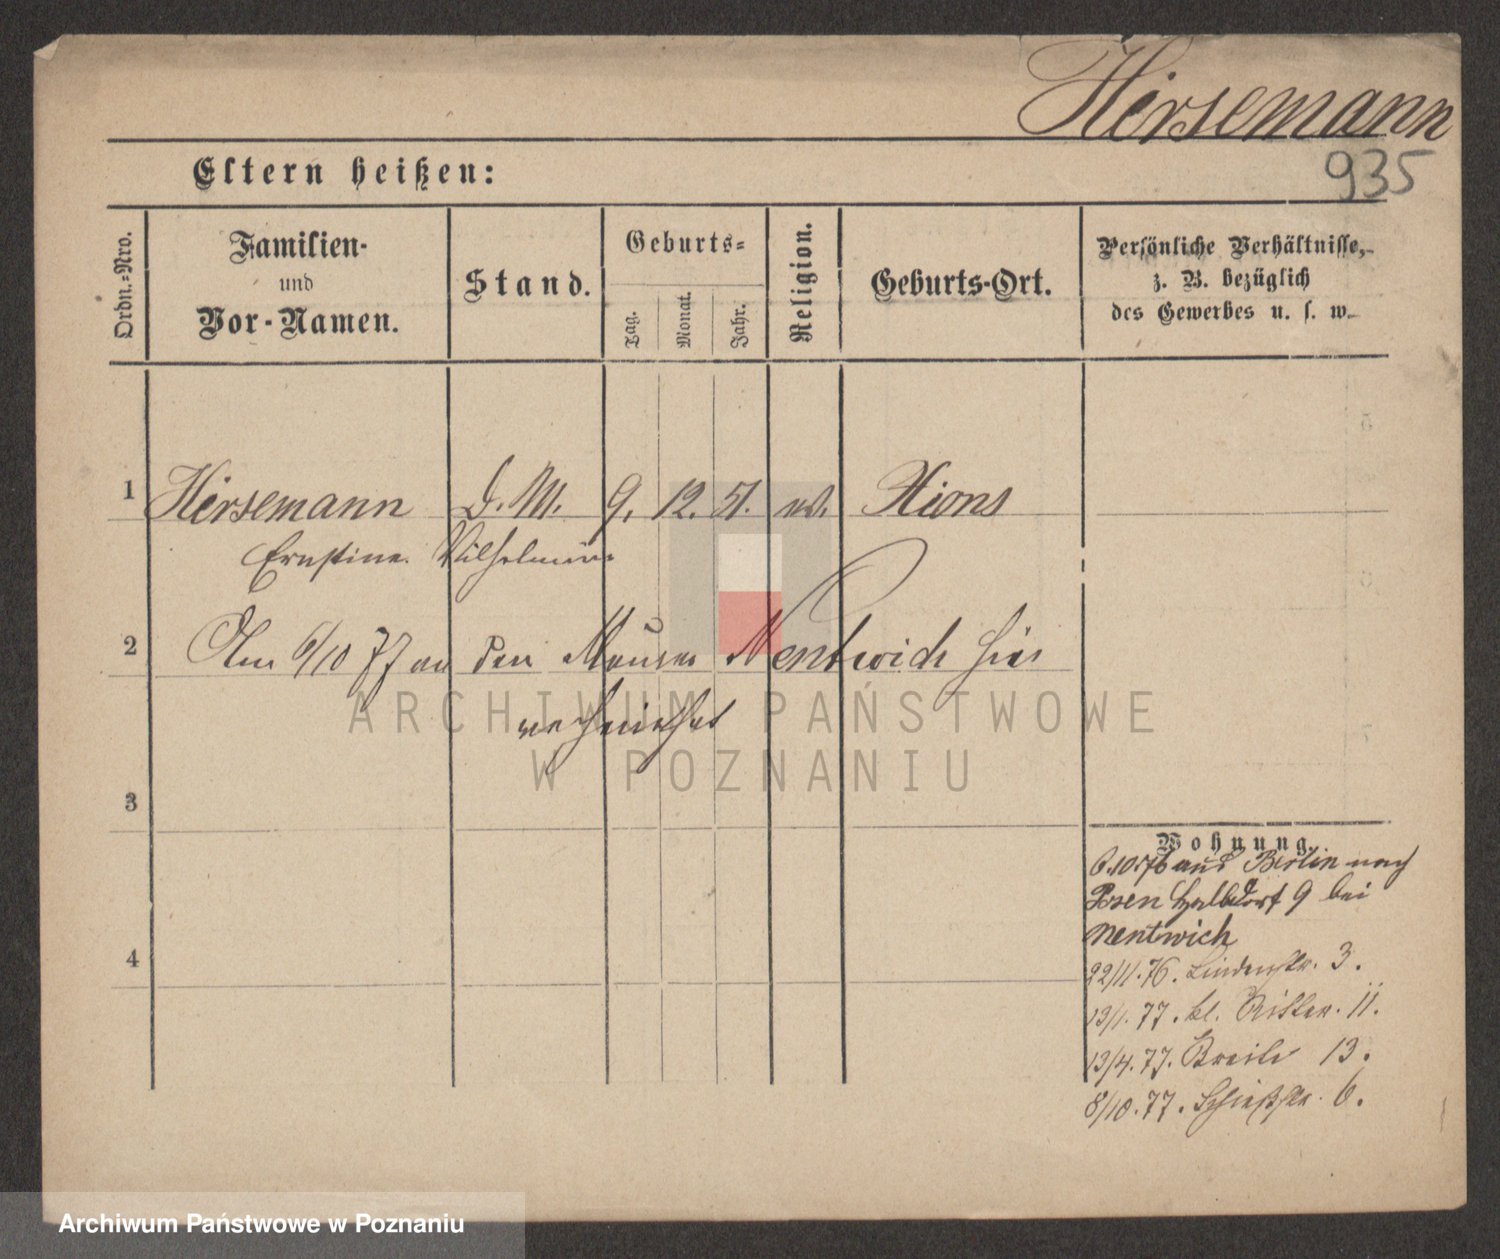 Hirsemann
935
Eltern heißen:
Ordn.-Nro.
Familien-
und
Vor-Namen.
Stand.
Geburts-
Tag.
Monat.
Jahr.
Religion.
Geburts-Ort.
Persönliche Verhältnisse,
z. B. bezüglich
des Gewerbes u. s. w.
1 Hirsemann D. M. 9. 12. 51. ev. Xions
Ernstine Wilhelmine
2 Am 6/10 77 an den Maurer Nentwich hier
verheirathet
3
4
Wohnung.
6.10.76 aus Berlin nach
Posen Halbdorf 9 bei
Nentwich
22/11.76. Lindenstr. 3.
13/1.77. kl. Ritter. 11.
13/4.77. Breite 13.
8/10.77. Schießstr. 6.
ARCHIWUM PAŃSTWOWE
W POZNANIU
Archiwum Państwowe w Poznaniu